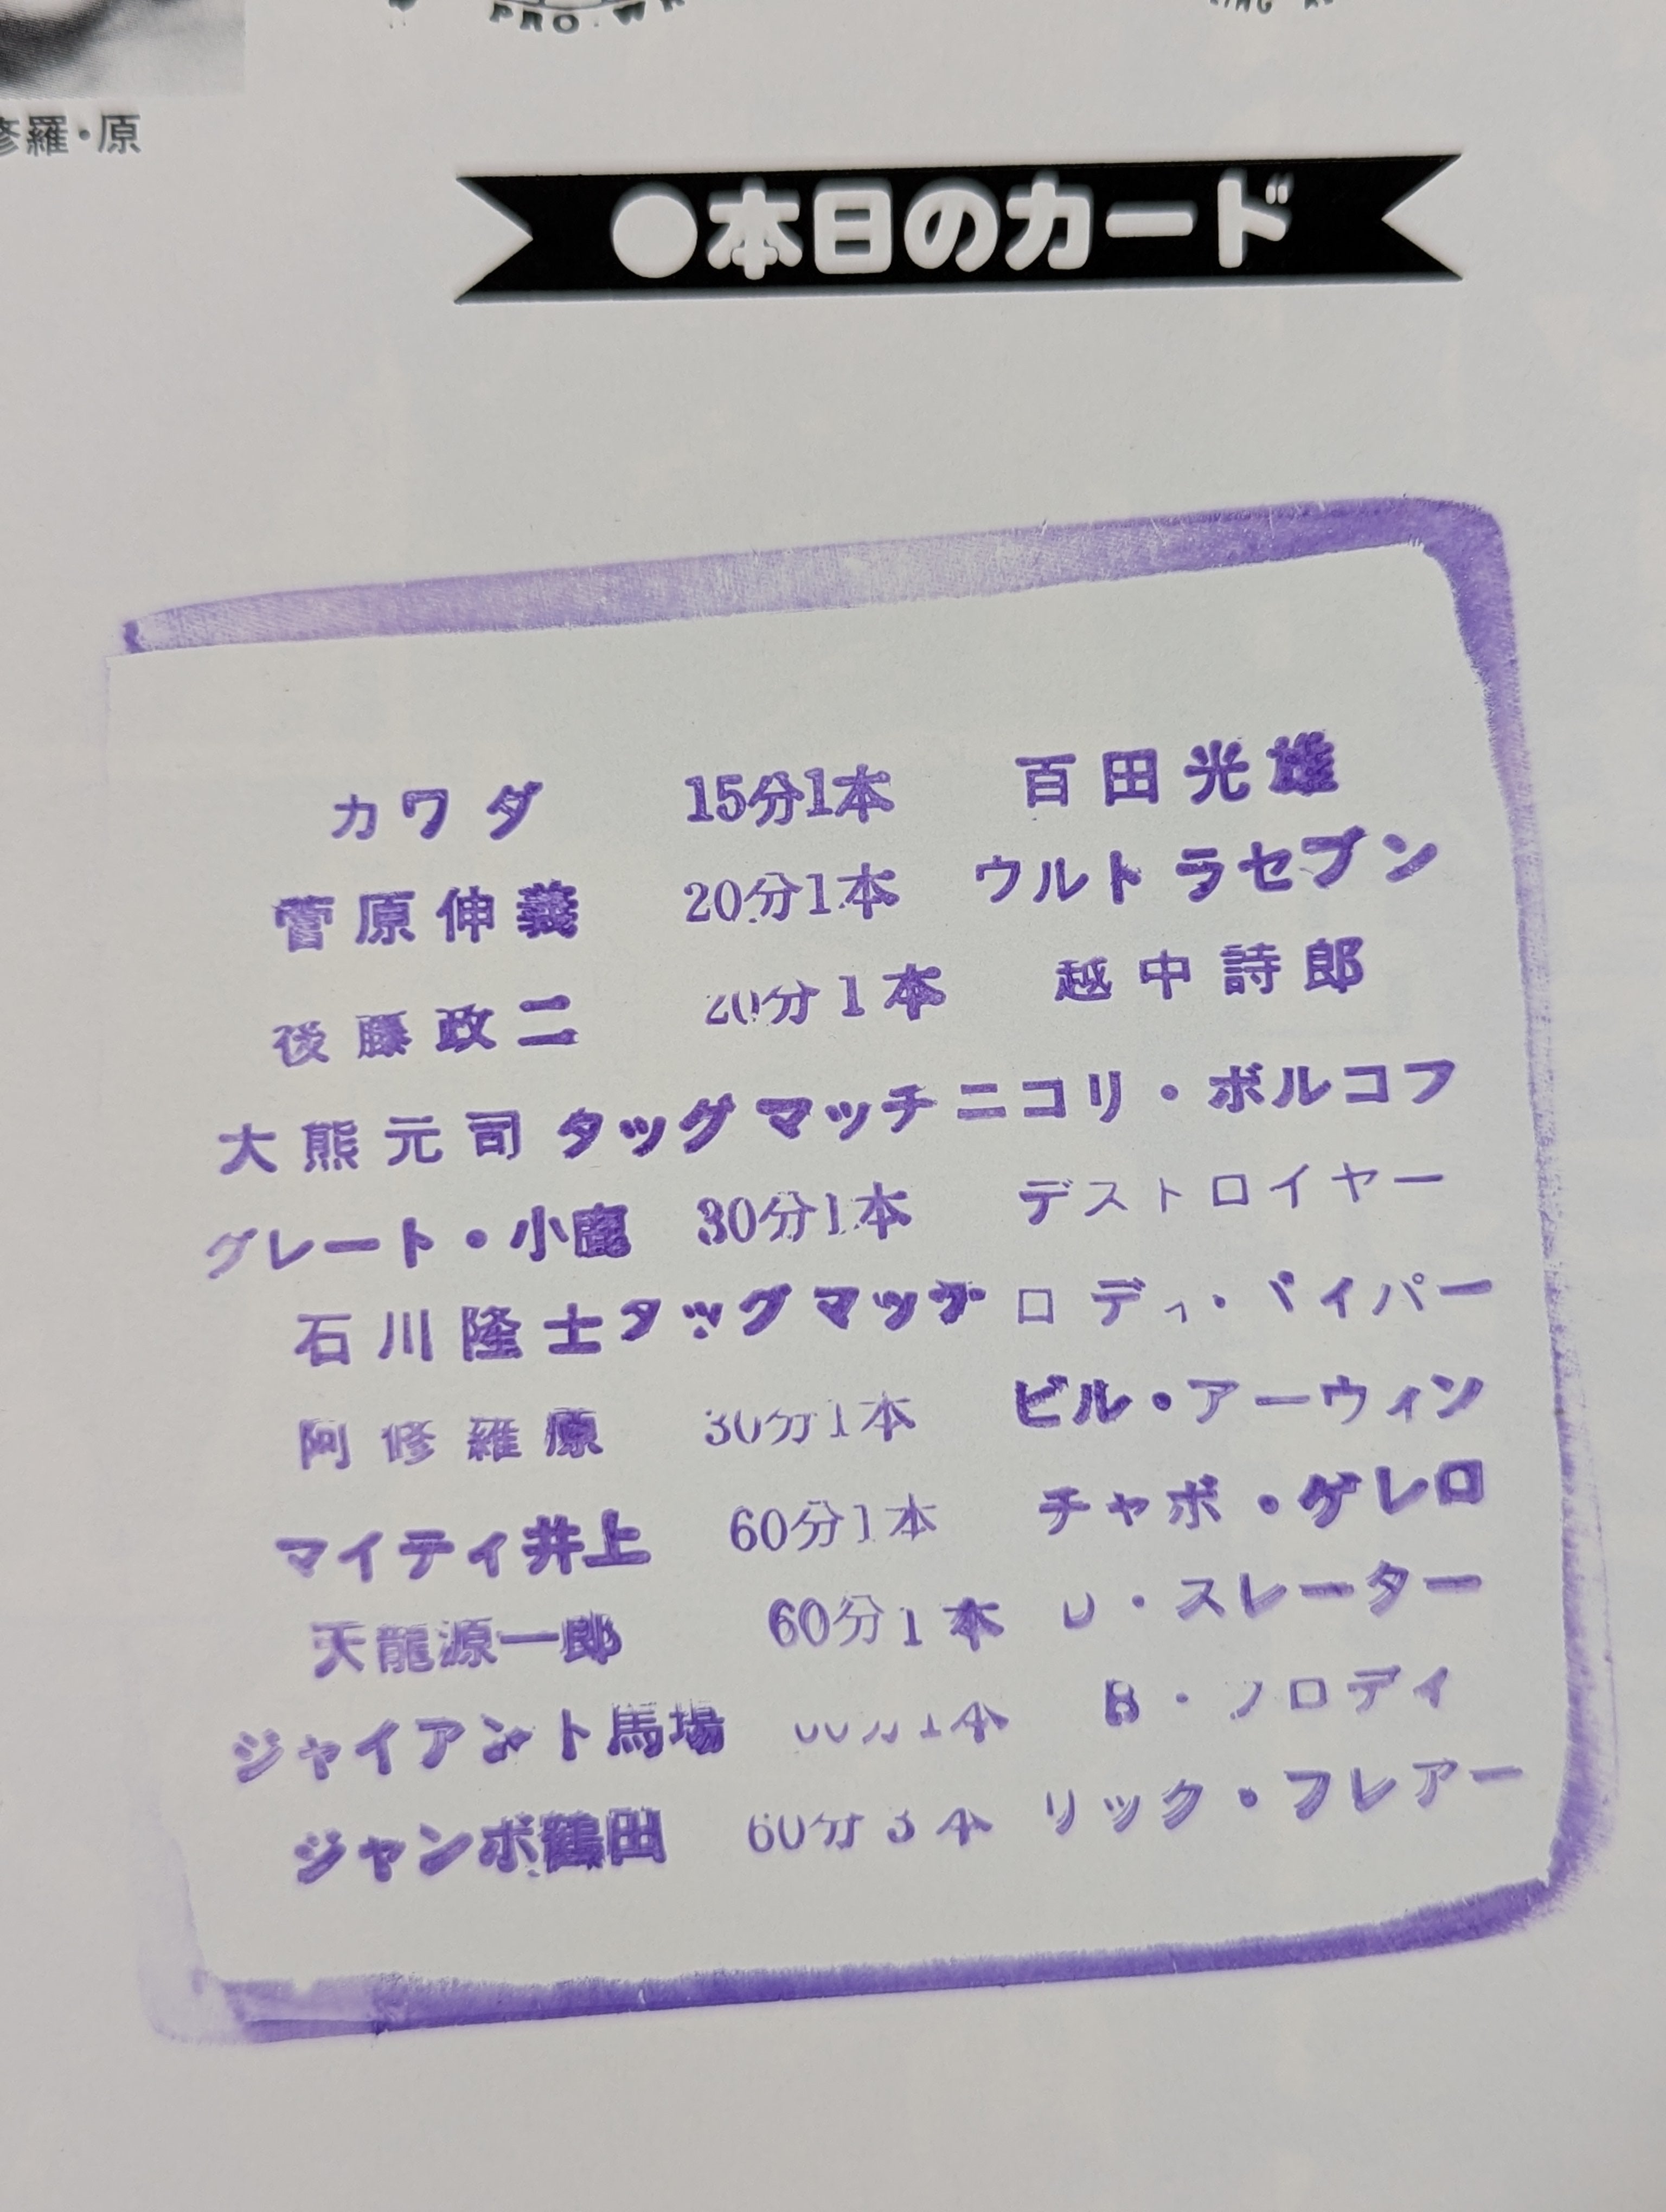 PRO・W
修羅・原
●本日のカード
カワダ 15分1本 百田光雄
菅原伸義 20分1本 ウルトラセブン
後藤政二 20分1本 越中詩郎
大熊元司 タッグマッチ ニコリ・ボルコフ
グレート・小鹿 30分1本 デストロイヤー
石川隆士 タッグマッチ ロディ・パイパー
阿修羅原 30分1本 ビル・アーウィン
マイティ井上 60分1本 チャボ・ゲレロ
天龍源一郎 60分1本 ・スレーター
ジャイアント馬場 1本 B・ブロディ
ジャンボ鶴田 60分3本 リック・フレアー